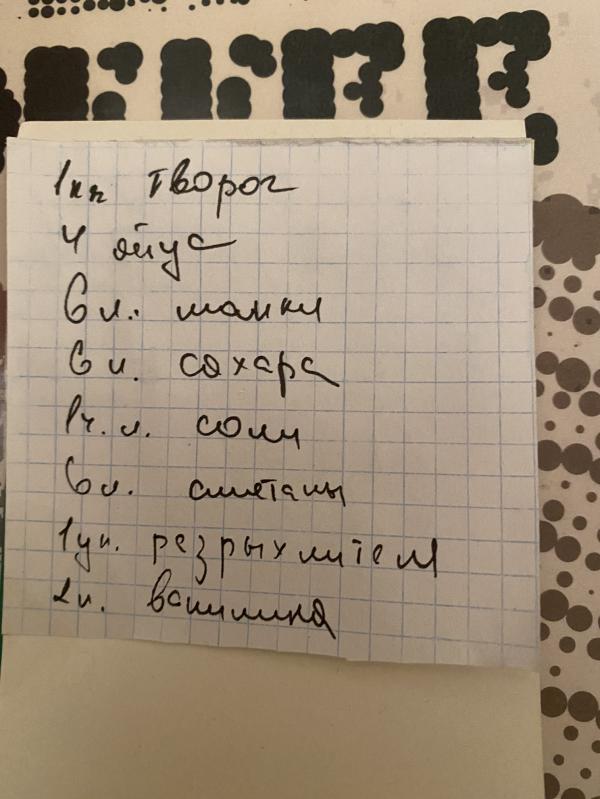 1кг творог
4 яйца
6 л. манки
6 л. сахара
1ч. л. соли
6 л. сметаны
1уп. разрыхлителя
2п. ванилина